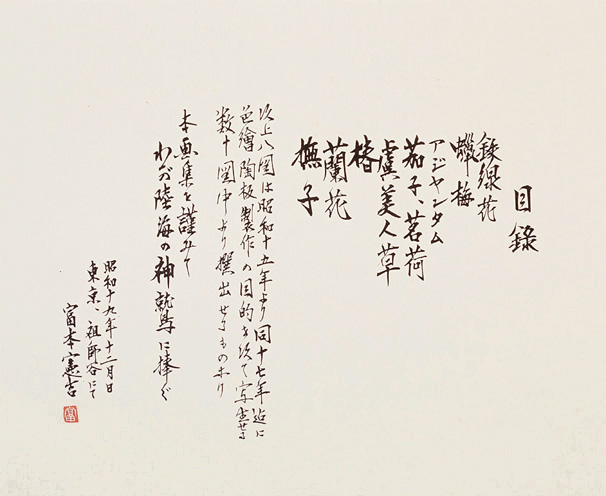 目録
鉄線花
蠟梅
アジヤンタム
茄子、茗荷
虞美人草
椿
蘭花
撫子
以上八図は昭和十五年より同十七年迄に
色繪陶板製作の目的を以て写生せる
数十図中より撰出せるものなり
本画集を謹みて
わが陸海の神鷲に捧ぐ
昭和十九年十二月日
東京、祖師谷にて
富本憲吉
富